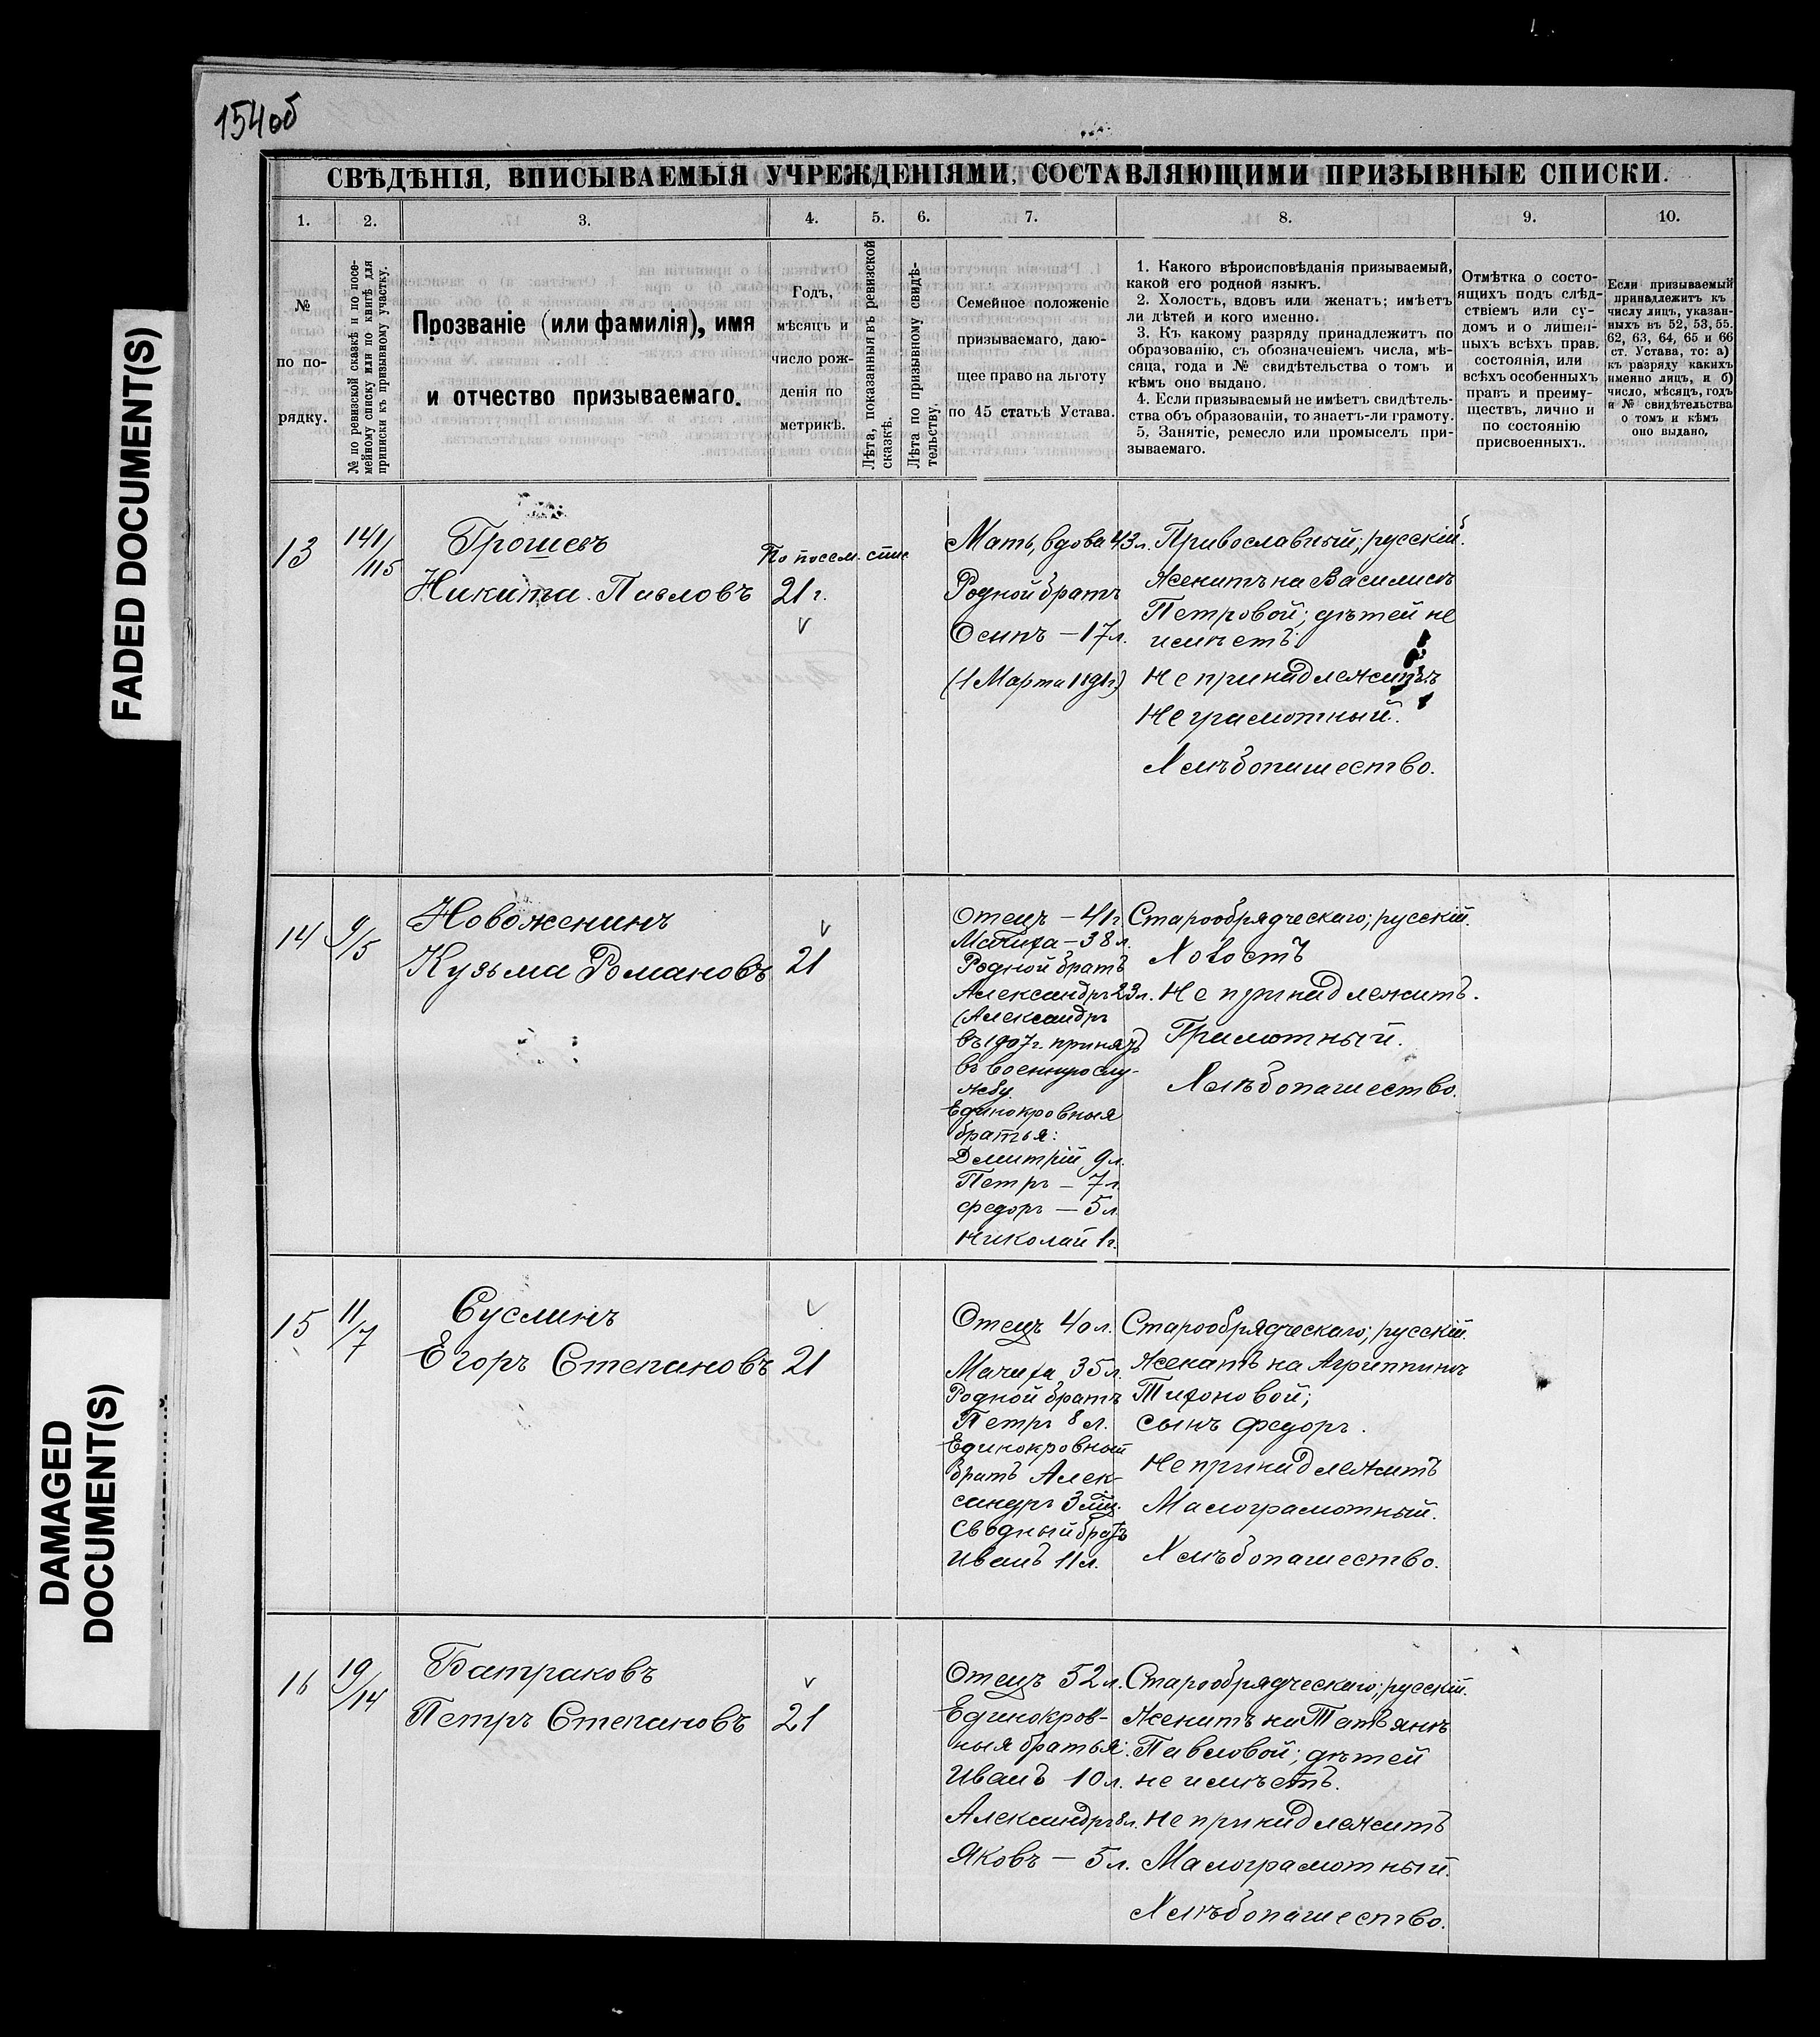 154об
СВѢДѢНІЯ, ВПИСЫВАЕМЫЯ УЧРЕЖДЕНІЯМИ, СОСТАВЛЯЮЩИМИ ПРИЗЫВНЫЕ СПИСКИ.
1. 2. 3. 4. 5. 6. 7. 8. 9. 10.
№
по по-
рядку.
№ по ревизской сказкѣ и по посе-
мейному списку или по книгѣ для
приписки къ призывному участку.
Прозваніе (или фамилія), имя
и отчество призываемаго.
Годъ,
мѣсяцъ и
число рож-
денія по
метрикѣ.
Лѣта, показанныя въ ревизской
сказкѣ.
Лѣта по призывному свидѣ-
тельству.
Семейное положеніе
призываемаго, даю-
щее право на льготу
по 45 статьѣ Устава.
1. Какого вѣроисповѣданія призываемый,
какой его родной языкъ.
2. Холостъ, вдовъ или женатъ; имѣетъ
ли дѣтей и кого именно.
3. Къ какому разряду принадлежитъ по
образованію, съ обозначеніемъ числа, мѣ-
сяца, года и № свидѣтельства о томъ и
кѣмъ оно выдано.
4. Если призываемый не имѣетъ свидѣтель-
ства объ образованіи, то знаетъ-ли грамоту.
5. Занятіе, ремесло или промыселъ при-
зываемаго.
Отмѣтка о состо-
ящихъ подъ слѣд-
ствіемъ или су-
домъ и о лишен-
ныхъ всѣхъ прав.
состоянія, или
всѣхъ особенныхъ
правъ и преиму-
ществъ, лично и
по состоянію
присвоенныхъ.
Если призываемый
принадлежитъ къ
числу лицъ, указан-
ныхъ въ 52, 53, 55.
62, 63, 64, 65 и 66
ст. Устава, то: а)
къ разряду какихъ
именно лицъ, и б)
число, мѣсяцъ, годъ
и № свидѣтельства
о томъ и кѣмъ
оно выдано,
13
141/115
Грошевъ
Никита Павловъ
По посем. спис.
21 г.
Мать, вдова 43 л.
Родной братъ
Осипъ — 17 л.
(1 Марта 1191 г.)
Православный; русскій.
Женатъ на Василисѣ
Петровой; дѣтей не
имѣетъ
Не принадлежитъ
Неграмотный.
Хлѣбопашество.
14
9/5
Новоженинъ
Кузьма Романовъ
21
Отецъ — 41 г.
Мачиха — 38 л.
Родной братъ
Александръ 23 л.
(Александръ
въ 1907 г. принятъ)
въ военную слу-
жбу.
Единокровныя
братья:
Дмитрій 9 л.
Петръ — 7 л.
Федоръ — 5 л.
Николай 1 г.
Старообрядческаго; русскій.
Холостъ
Не принадлежитъ.
Грамотный.
Хлѣбопашество.
15
11/7
Суслинъ
Егоръ Степановъ
21
Отецъ 40 л.
Мачиха 35 л.
Родной братъ
Петръ 8 л.
Единокровный
братъ Алек-
сандръ 3 мц.
Сводный братъ
Иванъ 11 л.
Старообрядческаго; русскій.
Женатъ на Агриппинѣ
Тихоновой;
сынъ Федоръ.
Не принадлежитъ
Малограмотный.
Хлѣбопашество.
16
19/14
Батраковъ
Петръ Степановъ
21
Отецъ 52 л.
Единокров-
ныя братья:
Иванъ 10 л.
Александръ 8 л.
Яковъ — 5 л.
Старообрядческаго; русскій.
Женатъ на Татьянѣ
Павловой; дѣтей
не имѣетъ.
Не принадлежитъ
Малограмотный.
Хлѣбопашество.
FADED DOCUMENT(S)
DAMAGED
DOCUMENT(S)